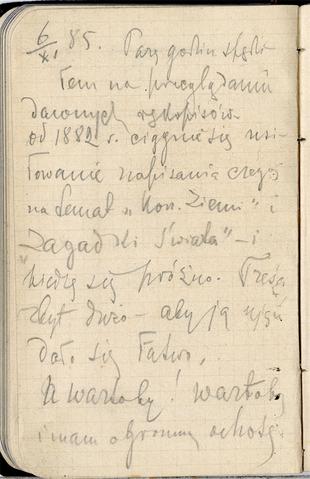 6/XI 85. Parę godzin spędzi-
łem na przeglądaniu
dawnych rękopisów
od 1882 r. ciągnie się usi-
łowanie napisania czegoś
na temat „Kon. Ziemi" i
„Zagadki świata" – i
kiedy się próżno. Treści
zbyt dużo – aby ją ująć
dało się łatwo,
A wartoby! wartoby
i mam ogromną ochotę.